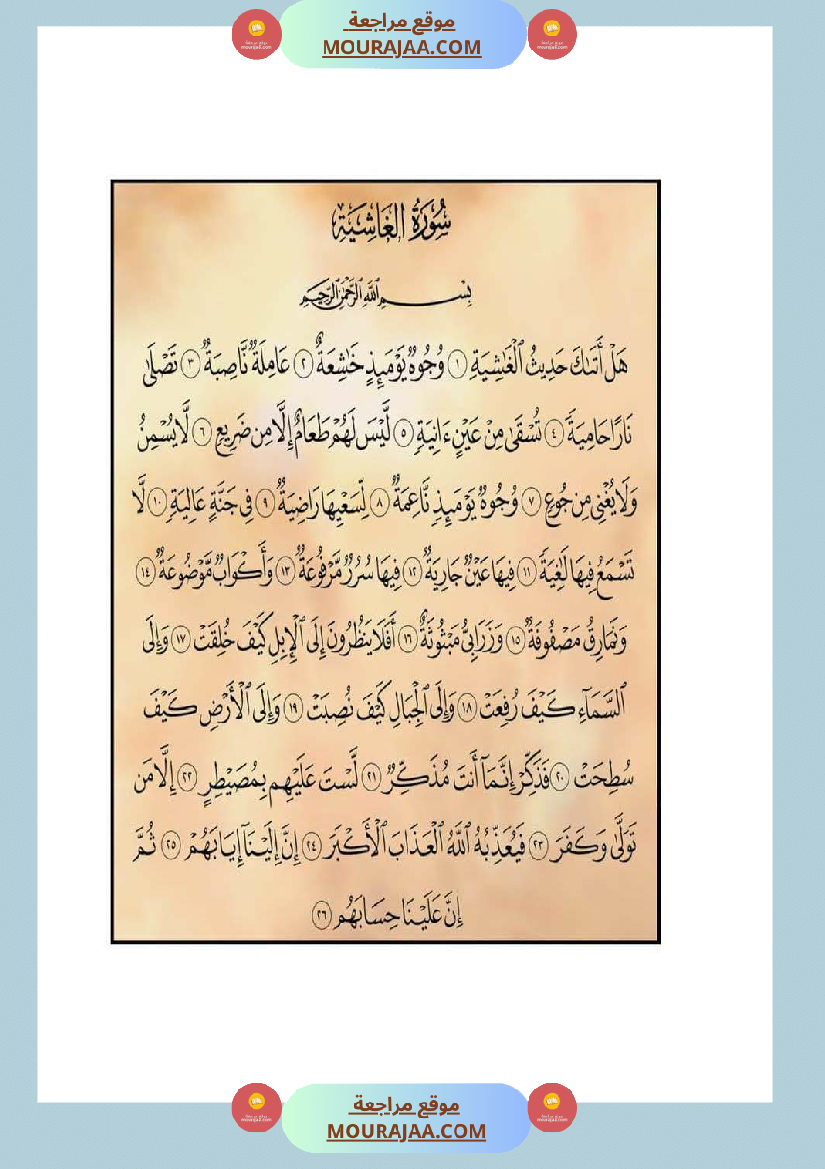 موقع مراجعة
MOURAJAA.COM
سُورَةُ الغَاشِيَةِ
بِسْمِ اللَّهِ الرَّحْمَٰنِ الرَّحِيمِ
هَلْ أَتَىٰكَ حَدِيثُ ٱلْغَٰشِيَةِ ١ وُجُوهٌ يَوْمَئِذٍ خَٰشِعَةٌ ٢ عَامِلَةٌ نَّاصِبَةٌ ٣ تَصْلَىٰ
نَارًا حَامِيَةً ٤ تُسْقَىٰ مِنْ عَيْنٍ ءَانِيَةٍ ٥ لَّيْسَ لَهُمْ طَعَامٌ إِلَّا مِن ضَرِيعٍ ٦ لَّا يُسْمِنُ
وَلَا يُغْنِى مِن جُوعٍ ٧ وُجُوهٌ يَوْمَئِذٍ نَّاعِمَةٌ ٨ لِّسَعْيِهَا رَاضِيَةٌ ٩ فِى جَنَّةٍ عَالِيَةٍ ١٠ لَّا
تَسْمَعُ فِيهَا لَٰغِيَةً ١١ فِيهَا عَيْنٌ جَارِيَةٌ ١٢ فِيهَا سُرُرٌ مَّرْفُوعَةٌ ١٣ وَأَكْوَابٌ مَّوْضُوعَةٌ ١٤
وَنَمَارِقُ مَصْفُوفَةٌ ١٥ وَزَرَابِىُّ مَبْثُوثَةٌ ١٦ أَفَلَا يَنظُرُونَ إِلَى ٱلْإِبِلِ كَيْفَ خُلِقَتْ ١٧ وَإِلَى
ٱلسَّمَآءِ كَيْفَ رُفِعَتْ ١٨ وَإِلَى ٱلْجِبَالِ كَيْفَ نُصِبَتْ ١٩ وَإِلَى ٱلْأَرْضِ كَيْفَ
سُطِحَتْ ٢٠ فَذَكِّرْ إِنَّمَآ أَنتَ مُذَكِّرٌ ٢١ لَّسْتَ عَلَيْهِم بِمُصَيْطِرٍ ٢٢ إِلَّا مَن
تَوَلَّىٰ وَكَفَرَ ٢٣ فَيُعَذِّبُهُ ٱللَّهُ ٱلْعَذَابَ ٱلْأَكْبَرَ ٢٤ إِنَّ إِلَيْنَآ إِيَابَهُمْ ٢٥ ثُمَّ
إِنَّ عَلَيْنَا حِسَابَهُم ٢٦
موقع مراجعة
MOURAJAA.COM